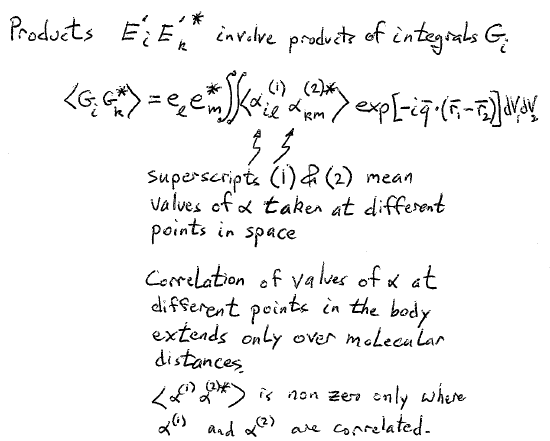 Products E'ᵢ E'ₖ* involve products of integrals Gᵢ
<Gᵢ Gₖ*> = eₗ eₘ* ∫∫<αᵢₗ⁽¹⁾ αₖₘ⁽²⁾*> exp[-iq̄·(r̄₁-r̄₂)]dV₁dV₂
superscripts (1) & (2) mean
values of α taken at different
points in space
Correlation of values of α at
different points in the body
extends only over molecular
distances.
<α⁽¹⁾ α⁽²⁾*> is non zero only where
α⁽¹⁾ and α⁽²⁾ are correlated.